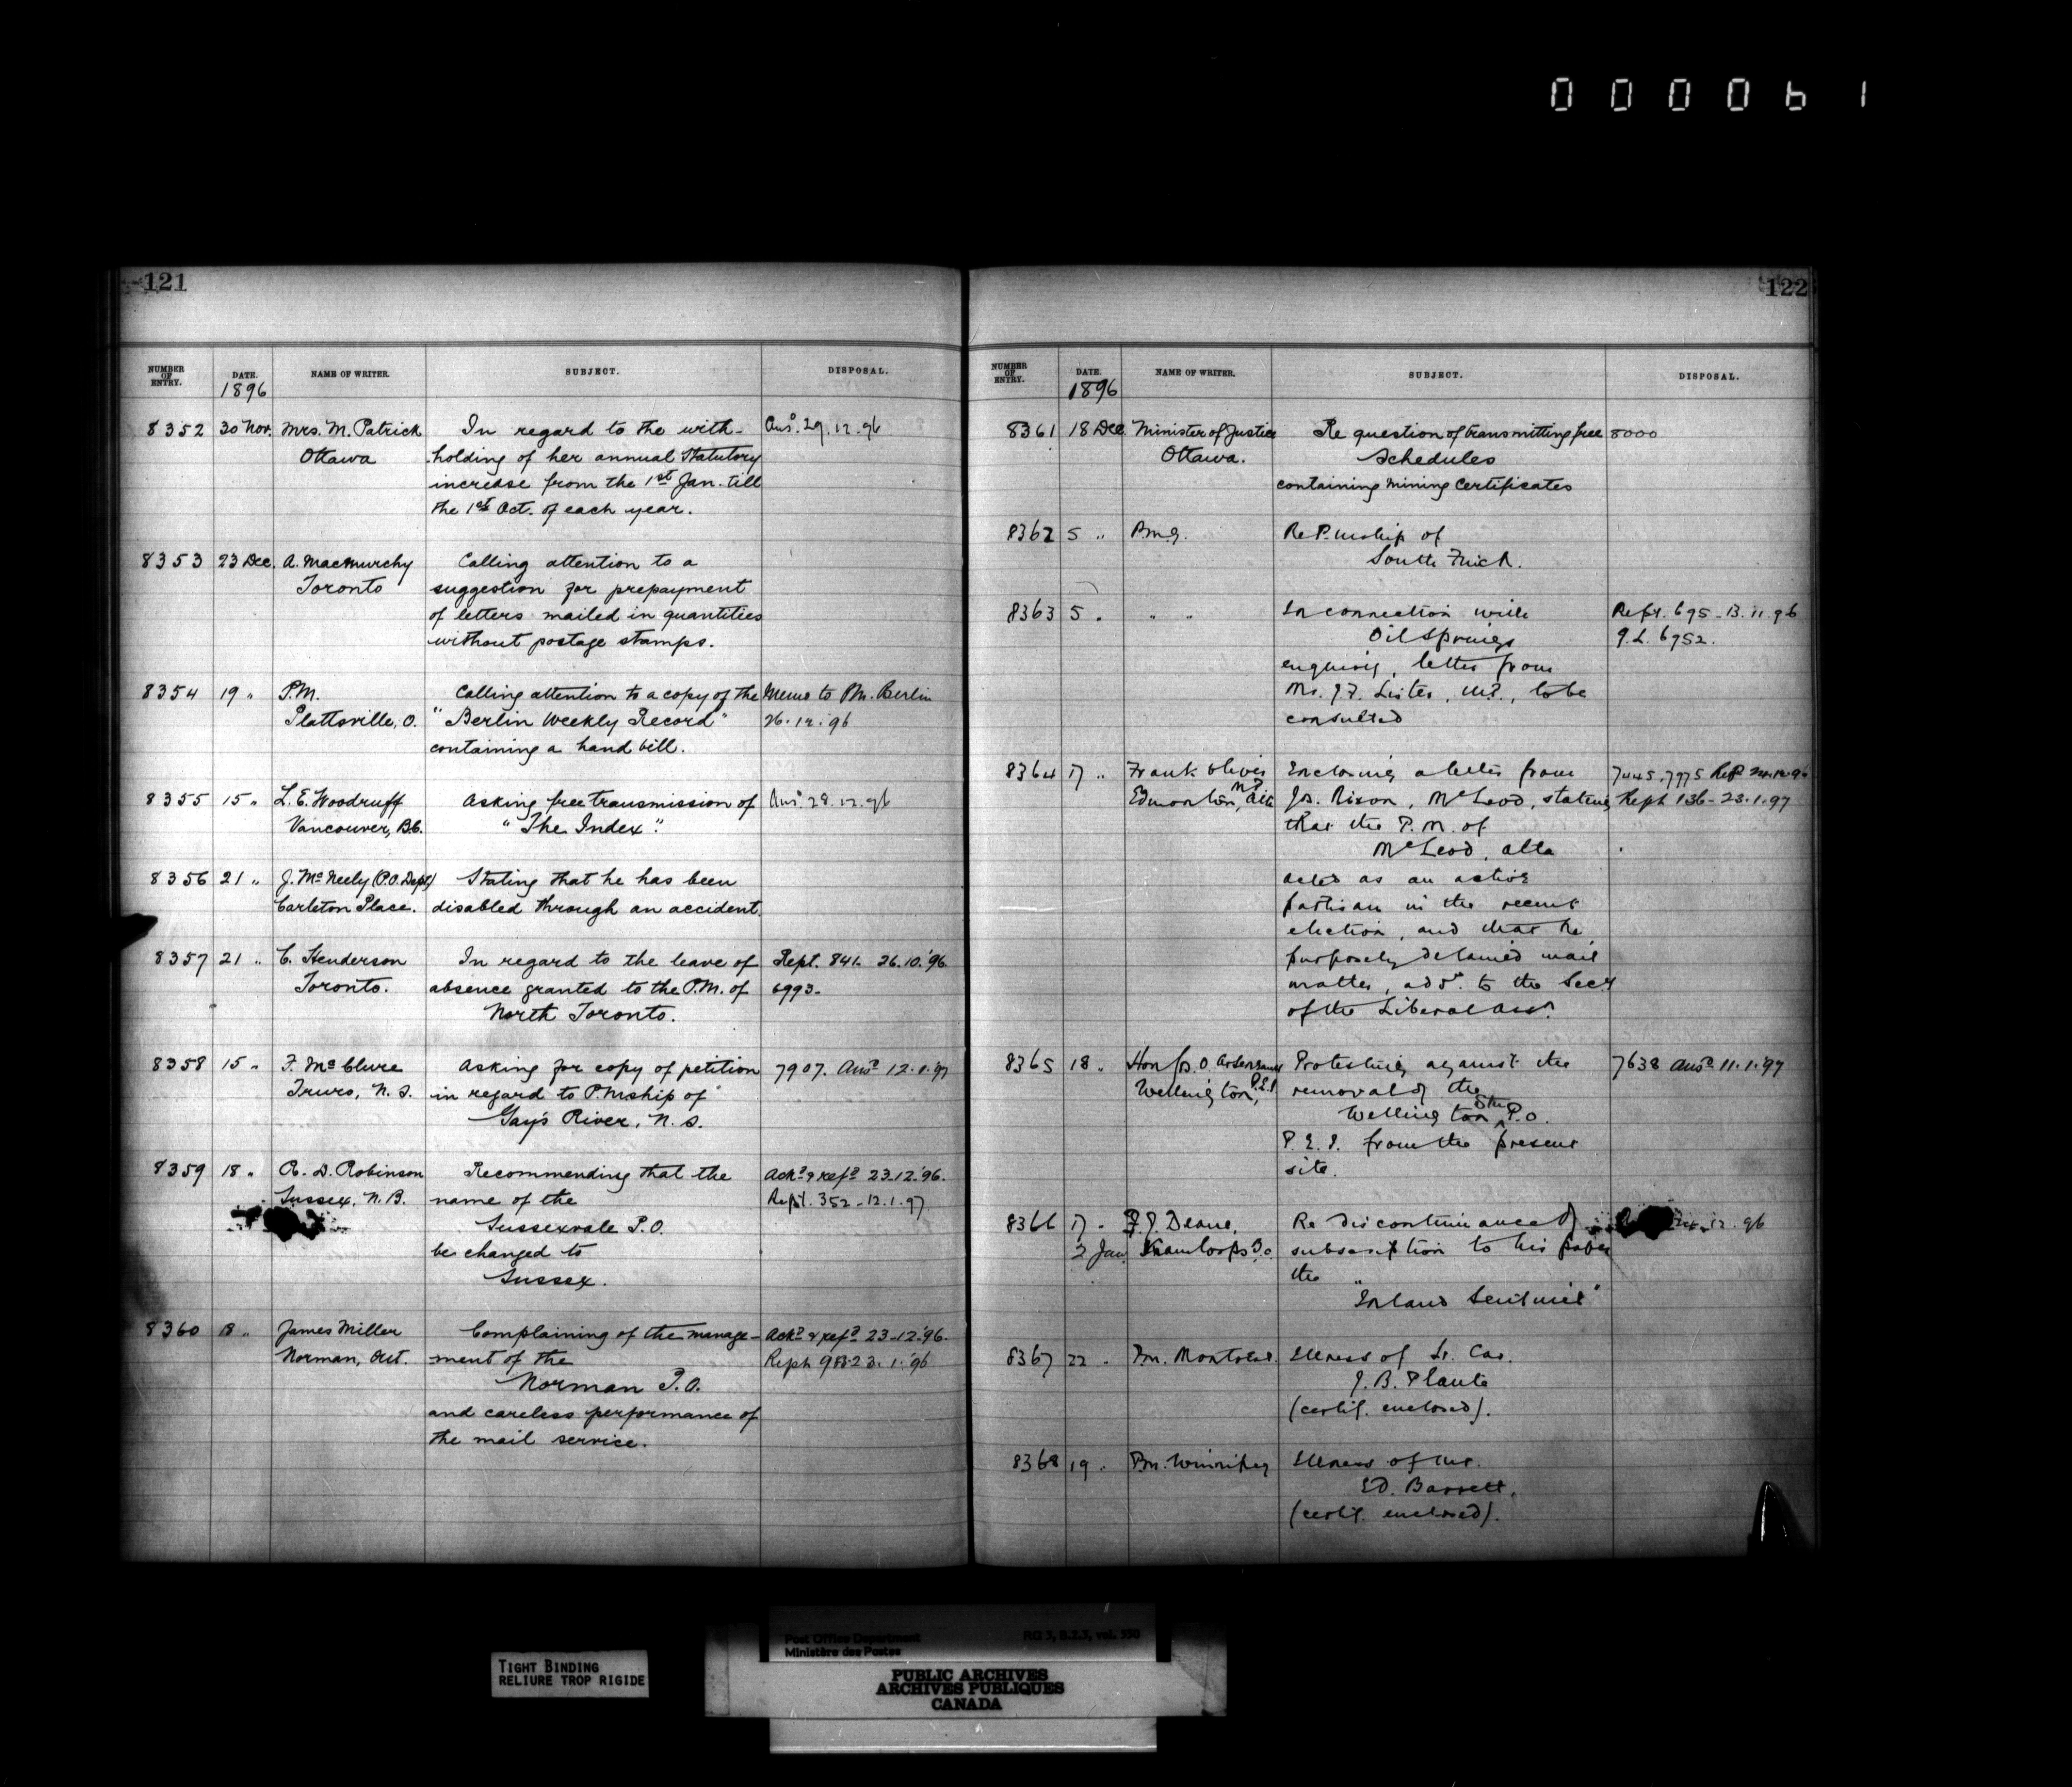 000061
121
NUMBER OF ENTRY. DATE. NAME OF WRITER. SUBJECT. DISPOSAL.
1896
8352 30 Nov. Mrs. M. Patrick In regard to the with- Ansd. 29.12.96
Ottawa holding of her annual Statutory
increase from the 1st Jan. till
the 1st Oct. of each year.
8353 23 Dec. A. MacMurchy Calling attention to a
Toronto suggestion for prepayment
of letters mailed in quantities
without postage stamps.
8354 19 " P.M. Calling attention to a copy of the Memo to P.M. Berlin
Plattsville, O. "Berlin Weekly Record" 26.12.96
containing a hand bill.
8355 15 " L. E. Woodruff Asking free transmission of Ansd. 28.12.96
Vancouver, B.C. "The Index".
8356 21 " J. McNeely (P.O. Dept) Stating that he has been
Carleton Place. disabled through an accident.
8357 21 " C. Henderson In regard to the leave of Rept. 841. 26.10.'96.
Toronto. absence granted to the P.M. of 6993.
North Toronto.
8358 15 " F. McClure Asking for copy of petition 7907. Ansd 12.1.'97
Truro, N.S. in regard to P.Mship of
Gay's River, N.S.
8359 18 " R. D. Robinson Recommending that the Ackd & refd 23.12.'96.
Sussex, N.B. name of the Rept. 352-12.1.97
Sussexvale P.O.
be changed to
Sussex.
8360 18 " James Miller Complaining of the manage- Ackd & refd 23-12.'96.
Norman, Ont. ment of the Reph 988-23.1.'96
Norman P.O.
and careless performance of
the mail service.
122
NUMBER OF ENTRY. DATE. NAME OF WRITER. SUBJECT. DISPOSAL.
1896
8361 18 Dec. Minister of Justice Re question of transmitting free 8000
Ottawa. Schedules
containing Mining Certificates
8362 5 " P.M.G. Re P.Mship of
South
8363 5 " " " In connection with Rept. 695-13.11.96
Oil Springs 9.L. 6752.
enquiry, letter from
Mr. J.F. Lister, M.P., to be
consulted
8364 17 " Frank Oliver MP Enclosing a letter from 7445.7975
Edmonton, Alta Jos. Nixon, McLeod, stating Reph 136-23.1.97
that the P.M. of
McLeod, Alta
acted as an active
partisan in the recent
election, and that he
purposely detained mail
matter, add. to the Secy
of the Liberal Assn.
8365 18 " Hon Jos. O. Arsenault Protesting against the 7638 Ansd 11.1.'97
Wellington, P.E.I. removal of the
Wellington Stn P.O.
P.E.I. from the present
site.
8366 17 " F. J. Deane, Re discontinuance of 12.96
2 Jan. Kamloops B.C. subscription to his paper
the
"Inland Sentinel"
8367 22 " P.M. Montreal. Illness of Lr. Car.
J. B. Plante
(certif. enclosed).
8368 19 " P.M. Winnipeg Illness of Mr.
Ed. Barrett,
(certif. enclosed).
Post Office Department RG 3, B.2.3, vol. 550
Ministère des Postes
TIGHT BINDING
RELIURE TROP RIGIDE
PUBLIC ARCHIVES
ARCHIVES PUBLIQUES
CANADA